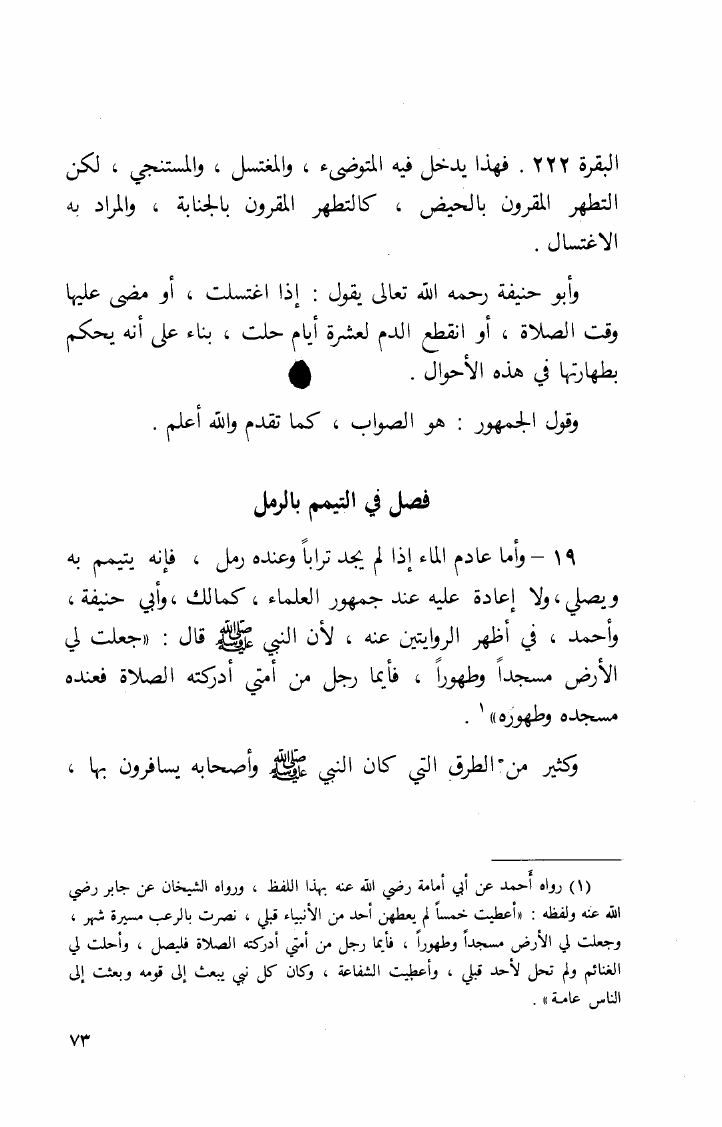 البقرة ٢٢٢ . فهذا يدخل فيه المتوضىء ، والمغتسل ، والمستنجي ، لكن
التطهر المقرون بالحيض ، كالتطهر المقرون بالجنابة ، والمراد به
الاغتسال .
وأبو حنيفة رحمه الله تعالى يقول : إذا اغتسلت ، أو مضى عليها
وقت الصلاة ، أو انقطع الدم لعشرة أيام حلت ، بناء على أنه يحكم
بطهارتها في هذه الأحوال .
وقول الجمهور : هو الصواب ، كما تقدم والله أعلم .
فصل في التيمم بالرمل
١٩ – وأما عادم الماء إذا لم يجد تراباً وعنده رمل ، فإنه يتيمم به
ويصلي ، ولا إعادة عليه عند جمهور العلماء ، كمالك ، وأبي حنيفة ،
وأحمد ، في أظهر الروايتين عنه ، لأن النبي ﷺ قال : «جعلت لي
الأرض مسجداً وطهوراً ، فأيما رجل من أمتي أدركته الصلاة فعنده
مسجده وطهوره» ١ .
وكثير من الطرق التي كان النبي ﷺ وأصحابه يسافرون بها ،
(١) رواه أحمد عن أبي أمامة رضي الله عنه بهذا اللفظ ، ورواه الشيخان عن جابر رضي
الله عنه ولفظه : «أعطيت خمساً لم يعطهن أحد من الأنبياء قبلي ، نصرت بالرعب مسيرة شهر ،
وجعلت لي الأرض مسجداً وطهوراً ، فأيما رجل من أمتي أدركته الصلاة فليصل ، وأحلت لي
الغنائم ولم تحل لأحد قبلي ، وأعطيت الشفاعة ، وكان كل نبي يبعث إلى قومه وبعثت إلى
الناس عامة» .
٧٣